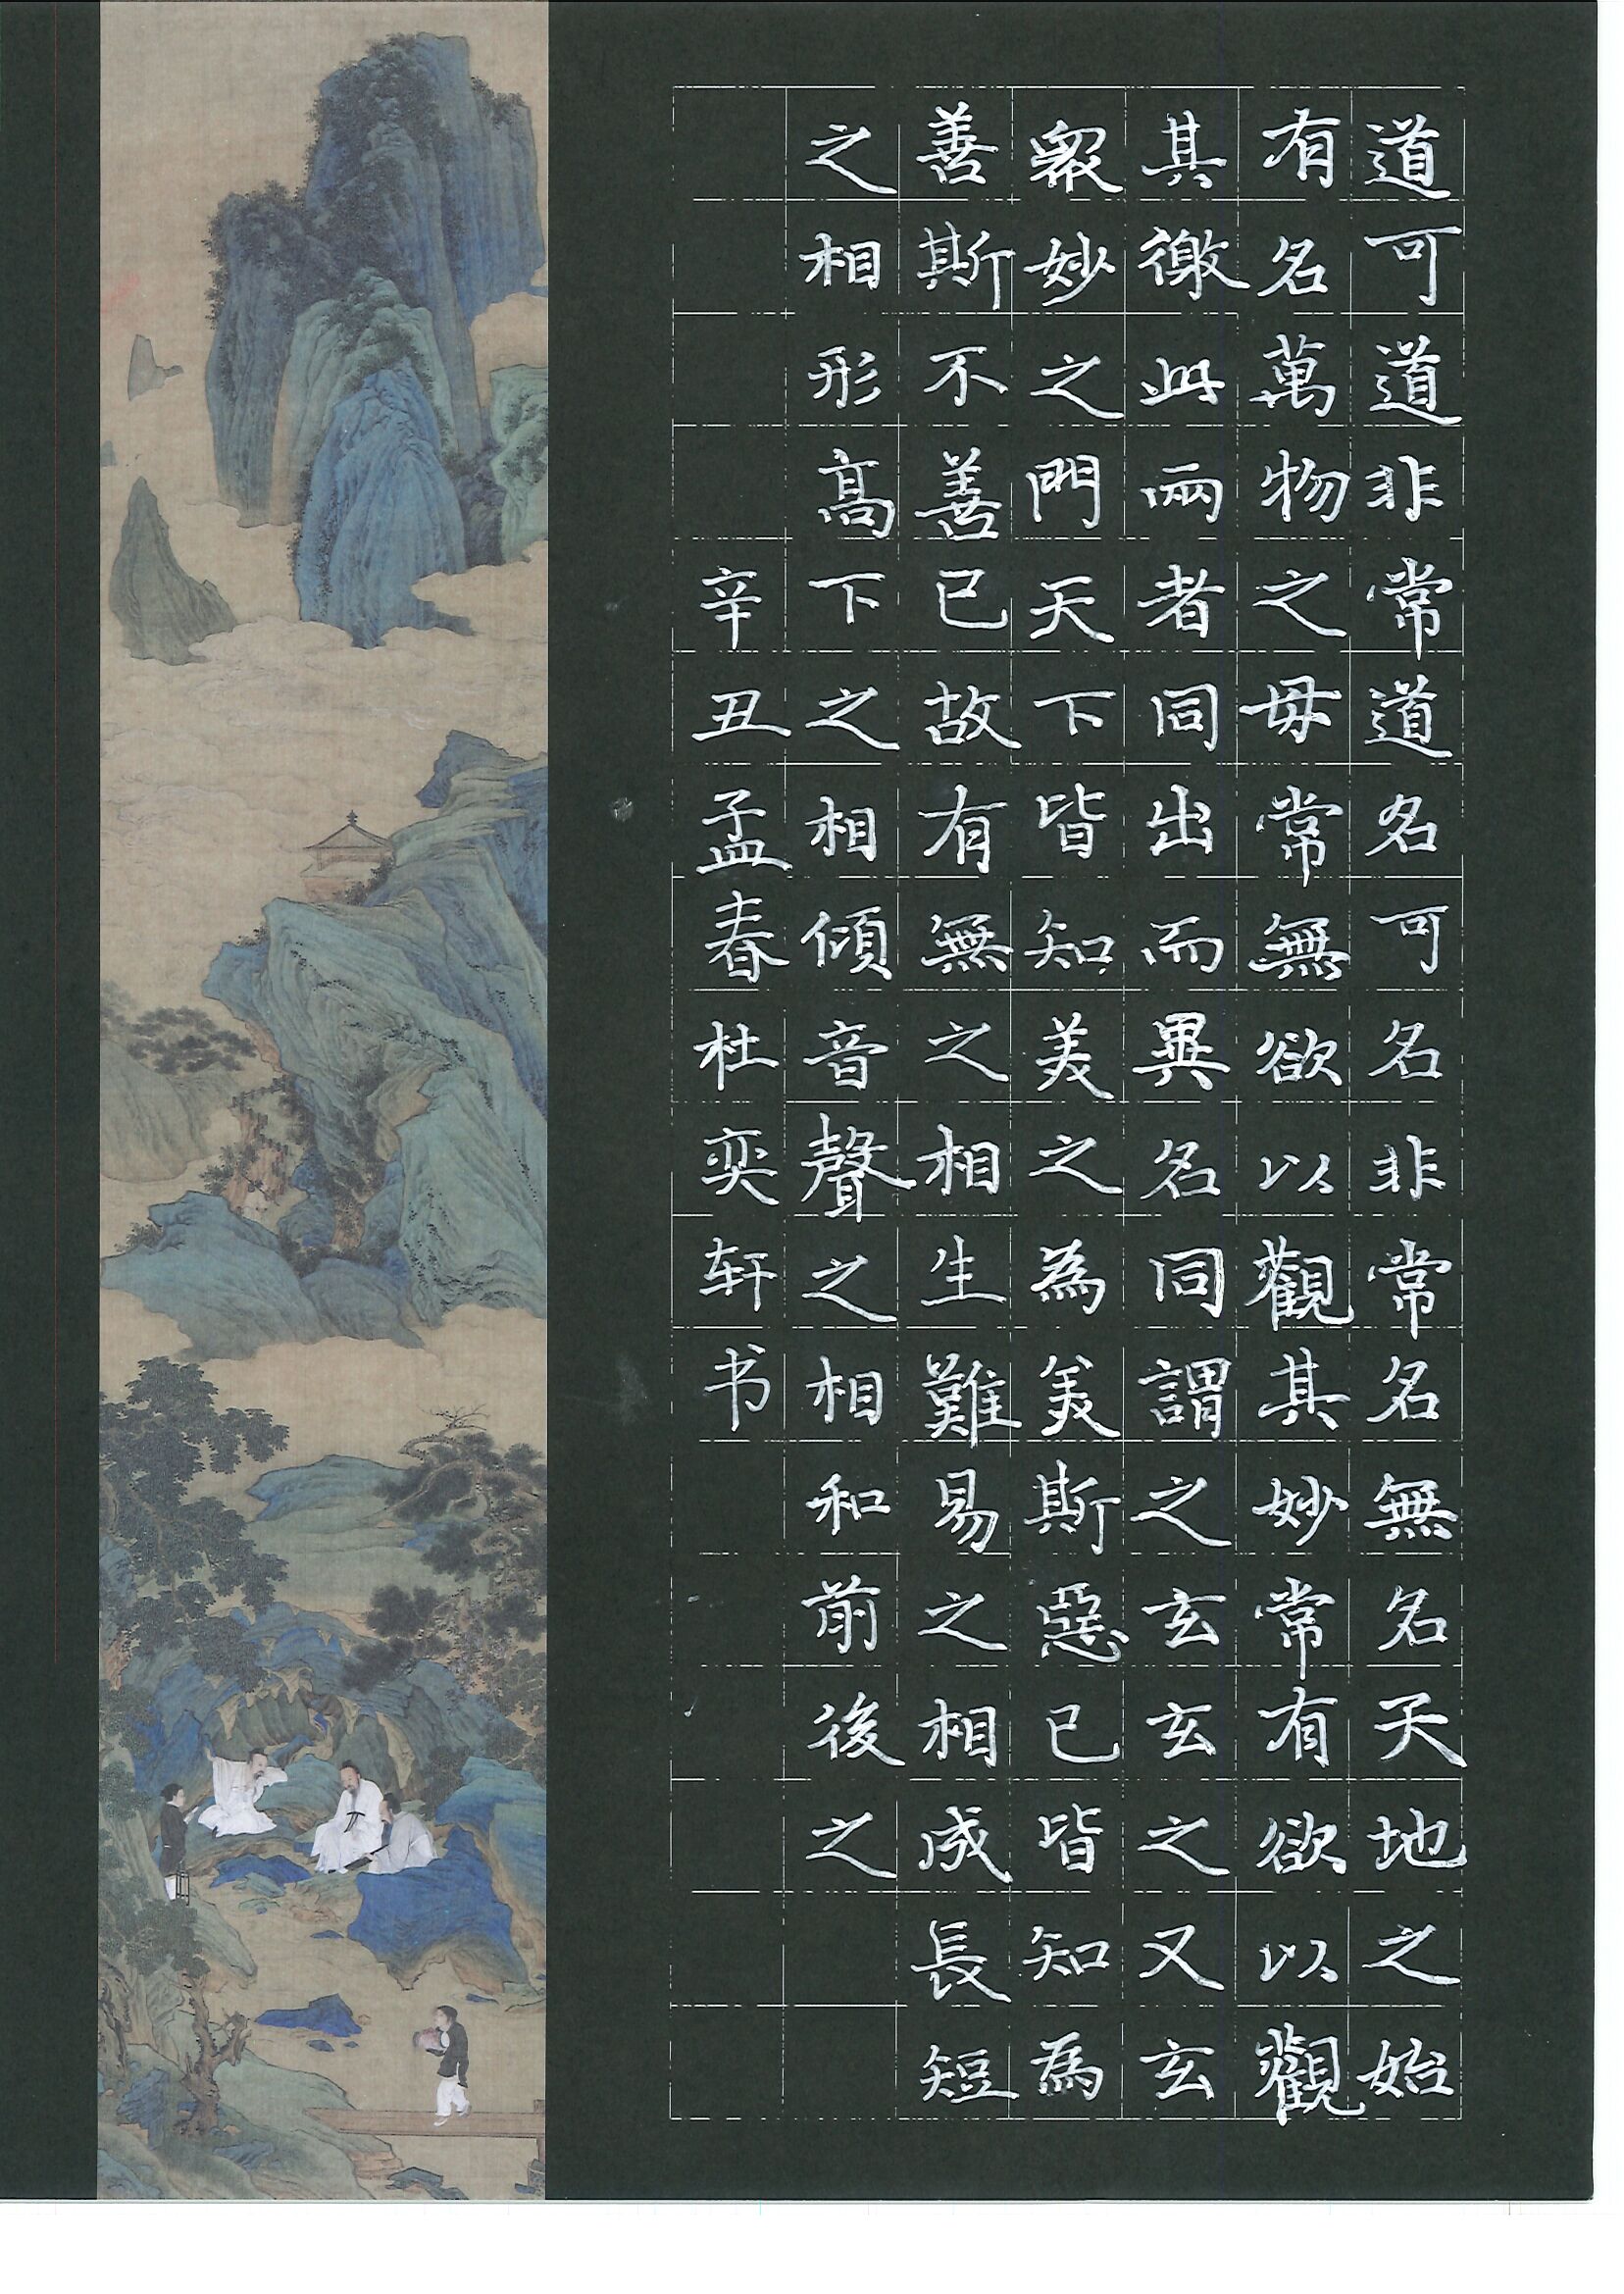 道可道非常道名可名非常名無名天地之始
有名萬物之母常無欲以觀其妙常有欲以觀
其徼此兩者同出而異名同謂之玄玄之又玄
眾妙之門天下皆知美之為美斯惡已皆知為
善斯不善已故有無之相生難易之相成長短
之相形髙下之相傾音聲之相和前後之
辛丑孟春杜奕轩书